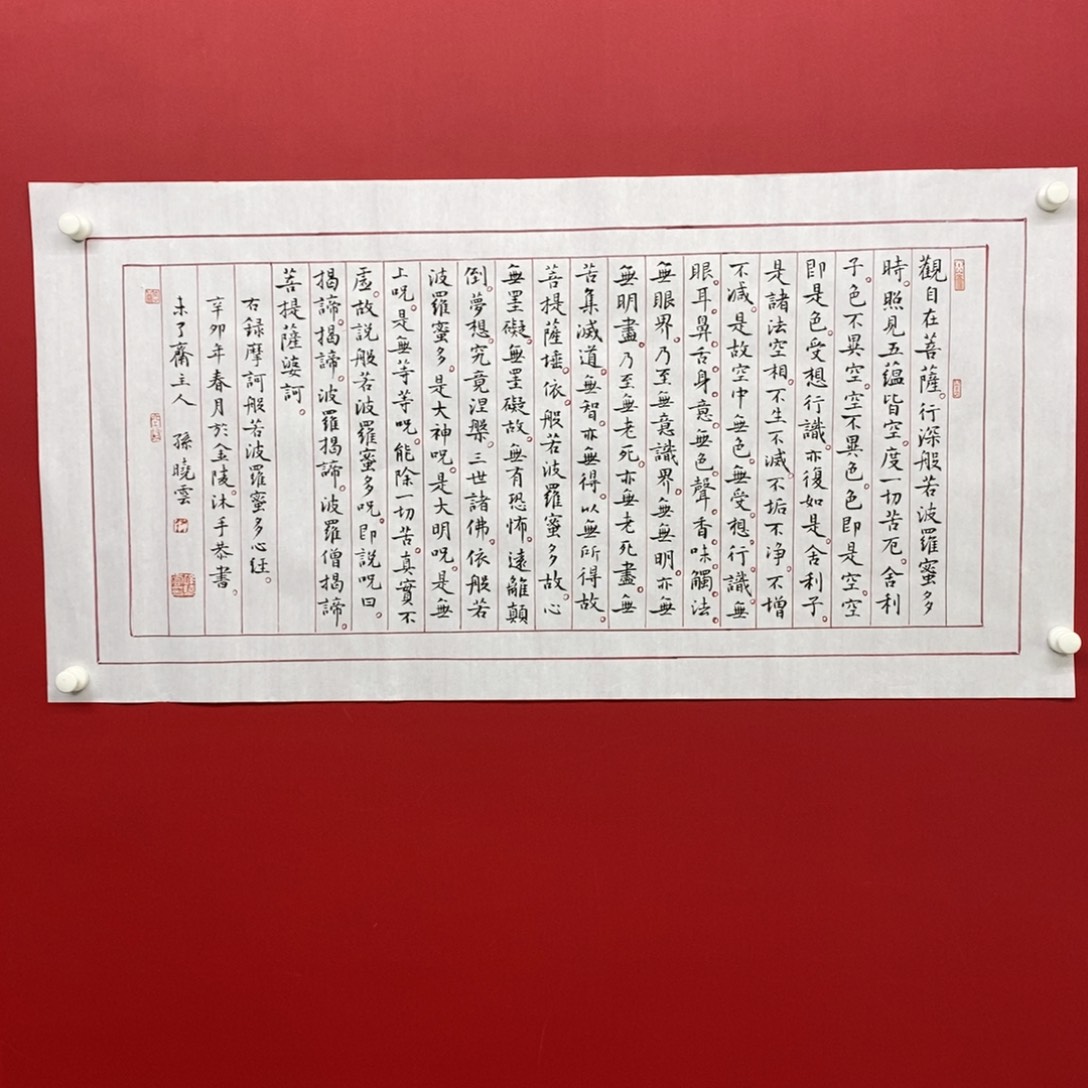 觀自在菩薩。行深般若波羅蜜多
時。照見五蘊皆空。度一切苦厄。舍利
子。色不異空。空不異色。色即是空。空
即是色。受想行識。亦復如是。舍利子。
是諸法空相。不生不滅。不垢不净。不增
不減。是故空中無色。無受。想。行。識。無
眼。耳。鼻。舌。身。意。無色。聲。香。味。觸。法。
無眼界。乃至無意識界。無無明。亦無
無明盡。乃至無老死。亦無老死盡。無
苦集滅道。無智。亦無得。以無所得故。
菩提薩埵。依般若波羅蜜多故。心
無罣礙。無罣礙故。無有恐怖。遠離顛
倒。夢想。究竟涅槃。三世諸佛。依般若
波羅蜜多。是大神呪。是大明呪。是無
上呪。是無等等呪。能除一切苦。真實不
虛。故說般若波羅蜜多呪。即說呪曰。
揭諦。揭諦。波羅揭諦。波羅僧揭諦。
菩提薩婆訶。
右録摩訶般若波羅蜜多心經。
辛卯年春月於金陵。沐手恭書。
未了齋主人 孫曉雲